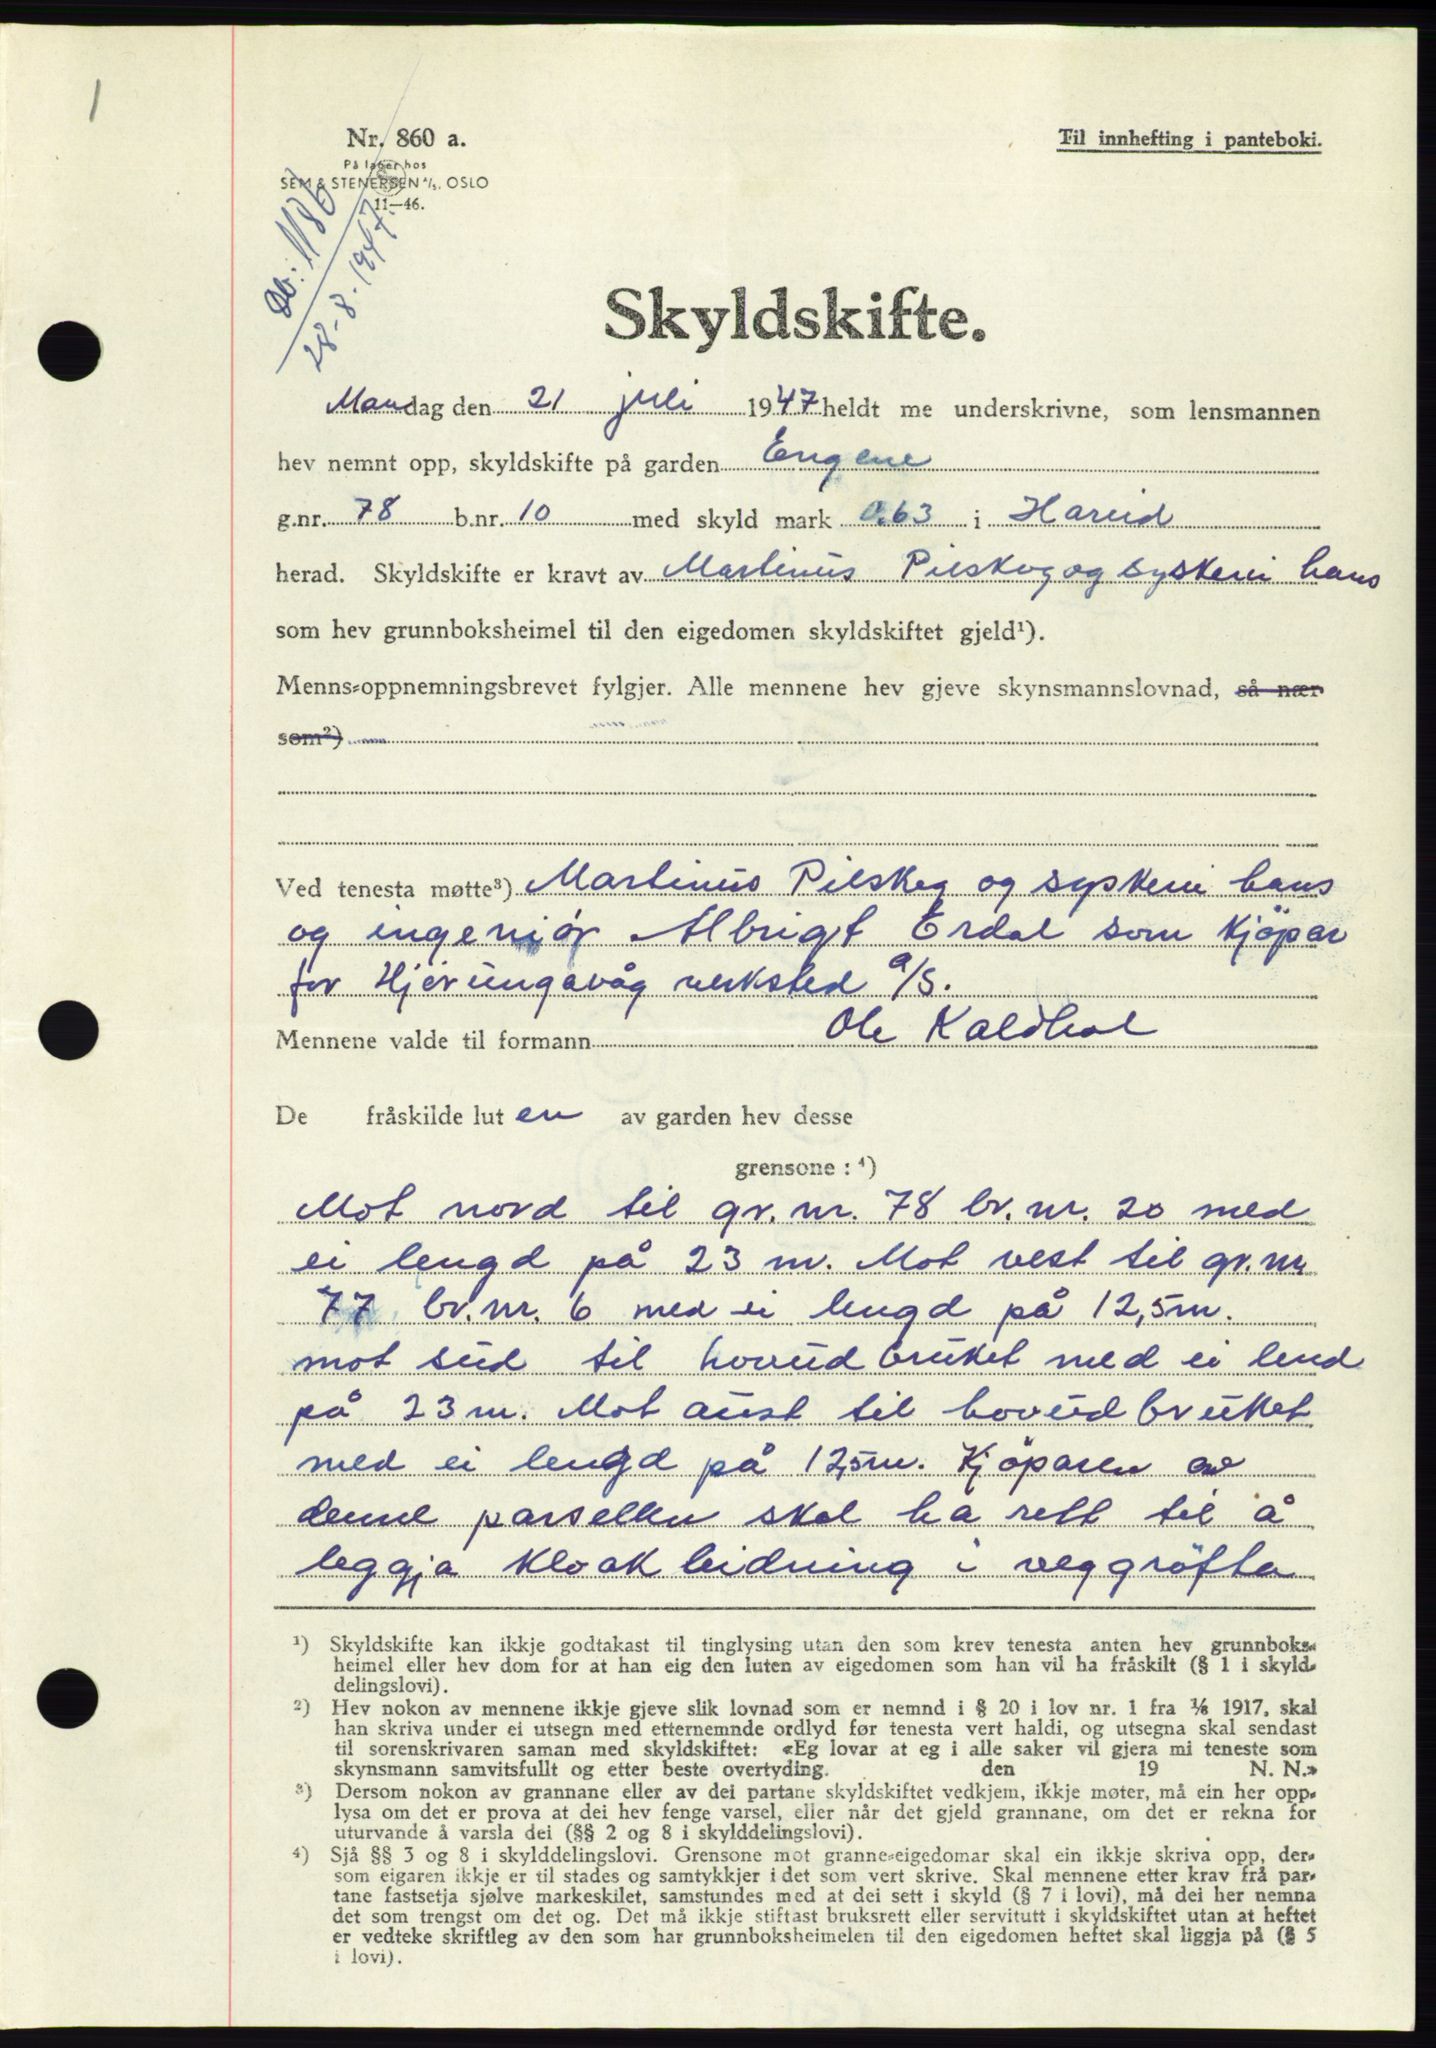 1
Nr. 860 a.
Til innhefting i panteboki.
På lager hos
SEM & STENERSEN A/S, OSLO
11—46.
Db: 1186
28-8-1947.
Skyldskifte.
Mandag den 21 juli 1947 heldt me underskrivne, som lensmannen
hev nemnt opp, skyldskifte på garden Engene
g.nr. 78 b.nr. 10 med skyld mark 0.63 i Hareid
herad. Skyldskifte er kravt av Martinus Pilskog og syskeni hans
som hev grunnboksheimel til den eigedomen skyldskiftet gjeld¹).
Menns-oppnemningsbrevet fylgjer. Alle mennene hev gjeve skynsmannslovnad, så nær
som²)
Ved tenesta møtte³) Martinus Pilskog og syskeni hans
og ingeniør Albrigt Erdal som kjöpar
for Hjörungavåg verksted a/s.
Mennene valde til formann Ole Kaldhol
De fråskilde lut en av garden hev desse
grensone : ⁴)
Mot nord til gr. nr. 78 br. nr. 20 med
ei lengd på 23 m. Mot vest til gr. nr
77 br. nr. 6 med ei lengd på 12,5m.
mot sud til hovudbruket med ei lend
på 23 m. Mot aust til hovudbruket
med ei lengd på 12,5m. Kjöparen av
denne parsellen skal ha rett til å
leggja kloakleidning i veggröfta
¹) Skyldskifte kan ikkje godtakast til tinglysing utan den som krev tenesta anten hev grunnboks-
heimel eller hev dom for at han eig den luten av eigedomen som han vil ha fråskilt (§ 1 i skyld-
delingslovi).
²) Hev nokon av mennene ikkje gjeve slik lovnad som er nemnd i § 20 i lov nr. 1 fra 1/6 1917, skal
han skriva under ei utsegn med etternemnde ordlyd før tenesta vert haldi, og utsegna skal sendast
til sorenskrivaren saman med skyldskiftet: «Eg lovar at eg i alle saker vil gjera mi teneste som
skynsmann samvitsfullt og etter beste overtyding. den 19 N. N.»
³) Dersom nokon av grannane eller av dei partane skyldskiftet vedkjem, ikkje møter, må ein her opp-
lysa om det er prova at dei hev fenge varsel, eller når det gjeld grannane, om det er rekna for
uturvande å varsla dei (§§ 2 og 8 i skylddelingslovi).
⁴) Sjå §§ 3 og 8 i skylddelingslovi. Grensone mot granne-eigedomar skal ein ikkje skriva opp, der-
som eigaren ikkje er til stades og samtykkjer i det som vert skrive. Skal mennene etter krav frå par-
tane fastsetja sjølve markeskilet, samstundes med at dei sett i skyld (§ 7 i lovi), må dei her nemna
det som trengst om det og. Det må ikkje stiftast bruksrett eller servitutt i skyldskiftet utan at heftet
er vedteke skriftleg av den som har grunnboksheimelen til den eigedomen heftet skal liggja på (§ 5
i lovi).